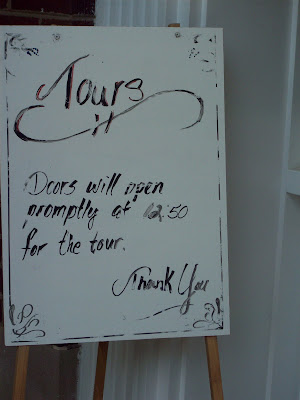 Tours
Doors will open
"promptly at" 12:50
for the tour.
Thank You